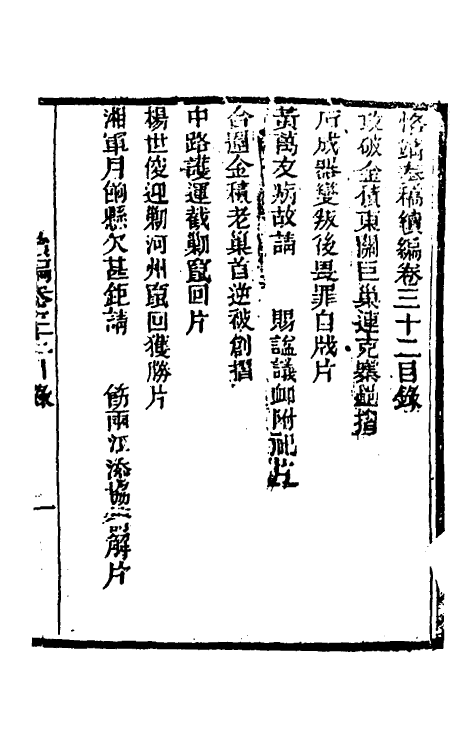 恪靖奏稿續編卷三十二目錄
攻破金積東關巨巢連克寨堡摺
成器變叛後畏罪自戕片
黃萬友病故請 賜諡議卹附祀片
合圍金積老巢首逆被創摺
中路護運截勦竄回片
楊世俊迎勦河州竄回獲勝片
湘軍月餉懸欠甚鉅請 飭兩江添協解片
續編卷三十二目錄
一